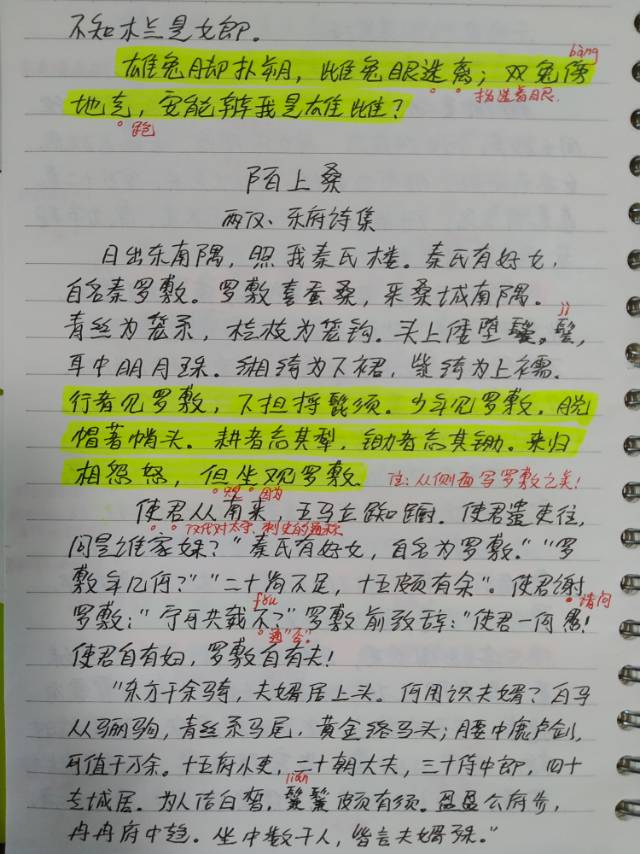 不知木兰是女郎。
雄兔脚扑朔，雌兔眼迷离；双兔傍
bàng
地走，安能辨我是雄雌？
跑
陌上桑
两汉、乐府诗集
日出东南隅，照我秦氏楼。秦氏有好女，
自名秦罗敷。罗敷喜蚕桑，采桑城南隅。
青丝为笼系，桂枝为笼钩。头上倭堕髻，
jì
耳中明月珠。缃绮为下裙，紫绮为上襦。
行者见罗敷，下担捋髭须。少年见罗敷，脱
帽著帩头。耕者忘其犁，锄者忘其锄。来归
相怨怒，但坐观罗敷
只是 因为
注：从侧面写罗敷之美！
使君从南来，五马立踟蹰。使君遣吏往，
汉代对太守、刺史的通称
问是谁家姝？"秦氏有好女，自名为罗敷。""罗
敷年几何？""二十尚不足，十五颇有余"。使君谢
请问
罗敷："宁可共载不？"罗敷前致辞："使君一何愚！
fǒu
通"否"。
使君自有妇，罗敷自有夫！
"东方千余骑，夫婿居上头。何用识夫婿？白马
从骊驹，青丝系马尾，黄金络马头；腰中鹿卢剑，
可值千万余。十五府小吏，二十朝大夫，三十侍中郎，四十
专城居。为人洁白皙，鬑鬑颇有须。盈盈公府步，
lián
冉冉府中趋。坐中数千人，皆言夫婿殊。"